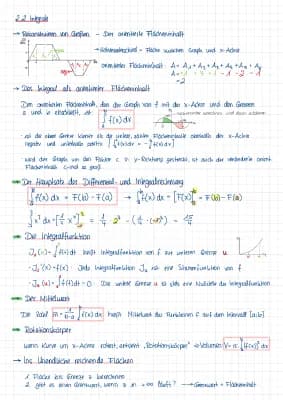 2.2 Integrale
→ Rekonstruieren von Größen - Der orientierte Flächeninhalt
= Fläche zwischen Graph und x-Achse
orientierter Flächeninhalt A = A₁ + A₂ + A₃ + A₄ + A₅ + A₆
= 2
→ Das Integral als orientierter Flächeninhalt
Den orientierten Flächeninhalt, den der Graph von f mit der x-Achse und den Grenzen
a und b einschließt, ist ∫ f(x) dx
- ist die obere Grenze kleiner als die untere, zählen Flächeninhalte oberhalb der x-Achse
negativ und unterhalb positiv
- wird der Graph um den Faktor c in y-Richtung gestreckt, ist auch der orientierte
Flächeninhalt c-mal so groß
→ Der Hauptsatz der Differential- und Integralrechnung
∫ f(x) dx = F(b) - F(a) → ∫ f(x) dx = [F(x)] = F(b) - F(a)
→ Die Integralfunktion
- Jₐ(x) = ∫ f(t) dt heißt Integralfunktion von f zur unteren Grenze a
- Jₐ'(x) = f(x) - Jede Integralfunktion Jₐ ist eine Stammfunktion von f
- Jₐ(a) = ∫ f(t) dt = 0 - Die untere Grenze a ist stets eine Nullstelle der Integralfunktion
→ Der Mittelwert
Die Zahl m = 1/(b-a) ∫ f(x) dx heißt Mittelwert der Funktion f auf dem Intervall [a;b]
→ Rotationskörper
wenn Kurve um x-Achse rotiert, entsteht "Rotationskörper" → Volumen V = π ∫ (f(x))² dx
→ Ins Unendliche reichende Flächen
1. Fläche bis Grenze z berechnen
2. gibt es einen Grenzwert, wenn z in +∞ läuft? → Grenzwert = Flächeninhalt